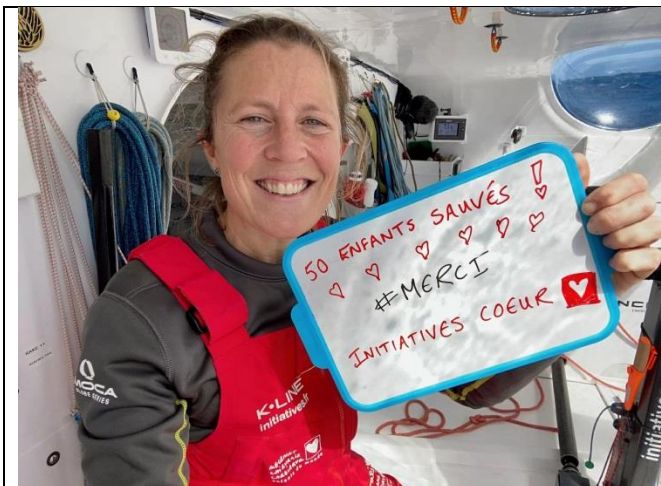 50 ENFANTS SAUVÉS !
#MERCI
INITIATIVES COEUR
MOCA
K•LINE
initiatives.fr
initiatives